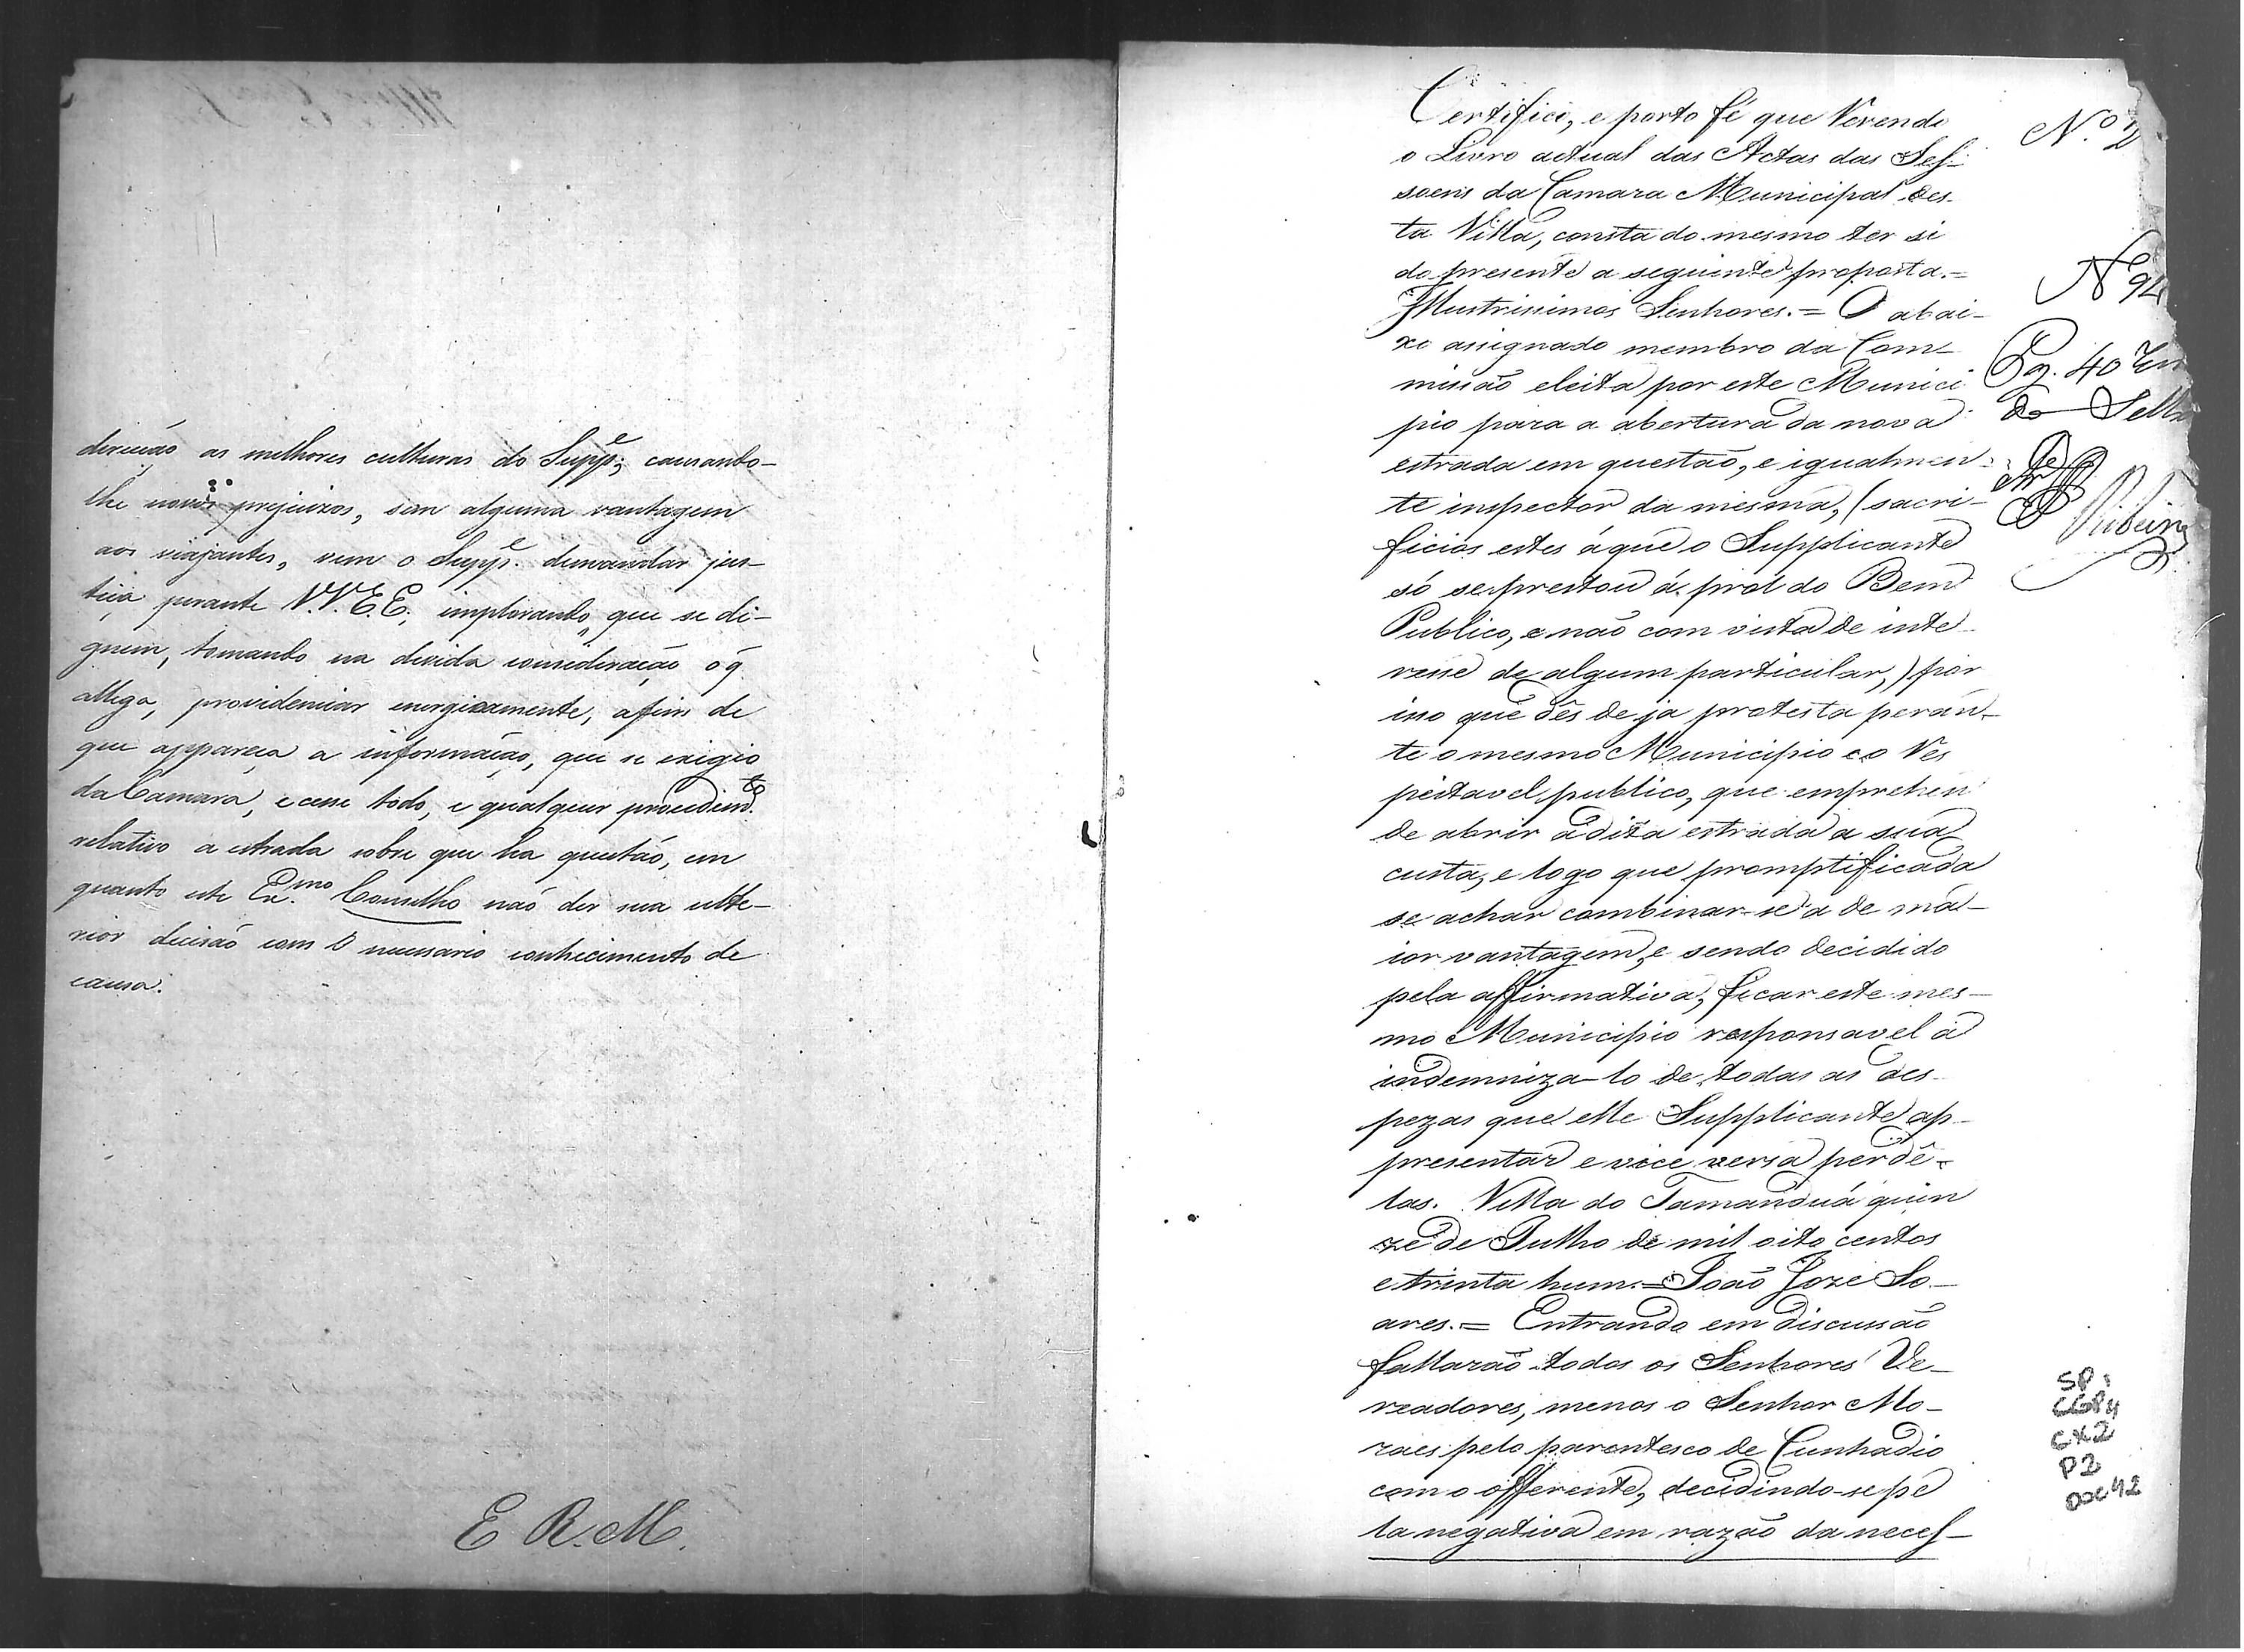 direcção as melhores culturas do Supp.e; causando-
lhe novos prejuizos, sem alguma vantagem
aos viajantes, vem o Supp.e demandar jus-
tiça perante V.V.E.E., implorando, que se di-
gnem, tomando na devida consideração o q̃
allega, providenciar energicamente, afim de
que appareça a informação, que se exigio
da Camara, e cesse todo, e qualquer procedim.to
relativo a estrada sobre que ha questão, em
quanto este Ex.mo Conselho não der sua ulte-
rior decisão com o necessario conhecimento de
causa.
E R. M.
Certifico, e porto fé que Revendo
o Livro actual das Actas das Ses-
soens da Camara Municipal des-
ta Villa, consta do mesmo ter si
do presente a seguinte proposta.=
Illustrissimos Senhores.= O abai-
xo assignado membro da Com-
missão eleita por este Munici
pio para a abertura da nova
estrada em questão, e igualmen-
te inspector da mesma, (sacri-
ficios estes á que o Supplicante
só se prestou á prol do Bem
Publico, e não com vista de inte-
resse de algum particular,) por
isso que dês de ja protesta peran-
te o mesmo Municipio e o Res
peitavel publico, que emprehen
de abrir a dita estrada a sua
custa, e logo que promptificada
se achar combinar-se a de ma-
ior vantagem, e sendo decidido
pela affirmativa, ficar este mes-
mo Municipio responsavel á
indemniza-lo de todas as des-
pezas que elle Supplicante ap-
presentar e vice versa perdê-
las. Villa do Tamanduá quin
ze de Julho de mil oito centos
e trinta hum.= João Joze So-
ares.= Entrando em discussão
fallarão todos os Senhores Ve-
readores, menos o Senhor Mo-
raes pelo parentesco de Cunhadio
com o offerente, decidindo-se pe
la negativa em razão da neces-
N.o 2
N 94
Pg. 40
do Sello
Ribeiro
SP 1
CGP4
CX2
P2
DOC42